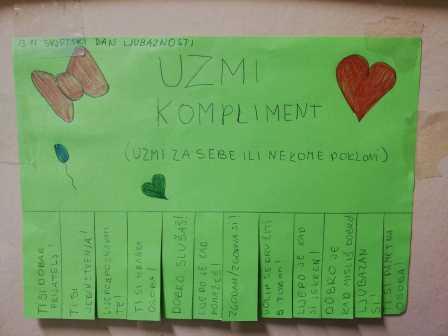 13.11 SVJETSKI DAN LJUBAZNOSTI
UZMI
KOMPLIMENT
(UZMI ZA SEBE ILI NEKOME POKLONI)
TI SI DOBAR
PRIJATELJ!
TI SI
JEDINSTVEN/A!
LIJEPO
TE!
TI SI HRABRA
OSOBA!
DOBRO SLUŠAŠ!
LIJEPO JE KAD
POMAŽEŠ!
ZGODAN/ZGODNA SI!
VOLIM SE DRUŽITI
S TOBOM!
LIJEPO JE KAD
SI ISKREN!
DOBRO JE
KAD MISLIŠ DOBRO!
LJUBAZAN
SI!
TI SI PAMETNA
OSOBA!